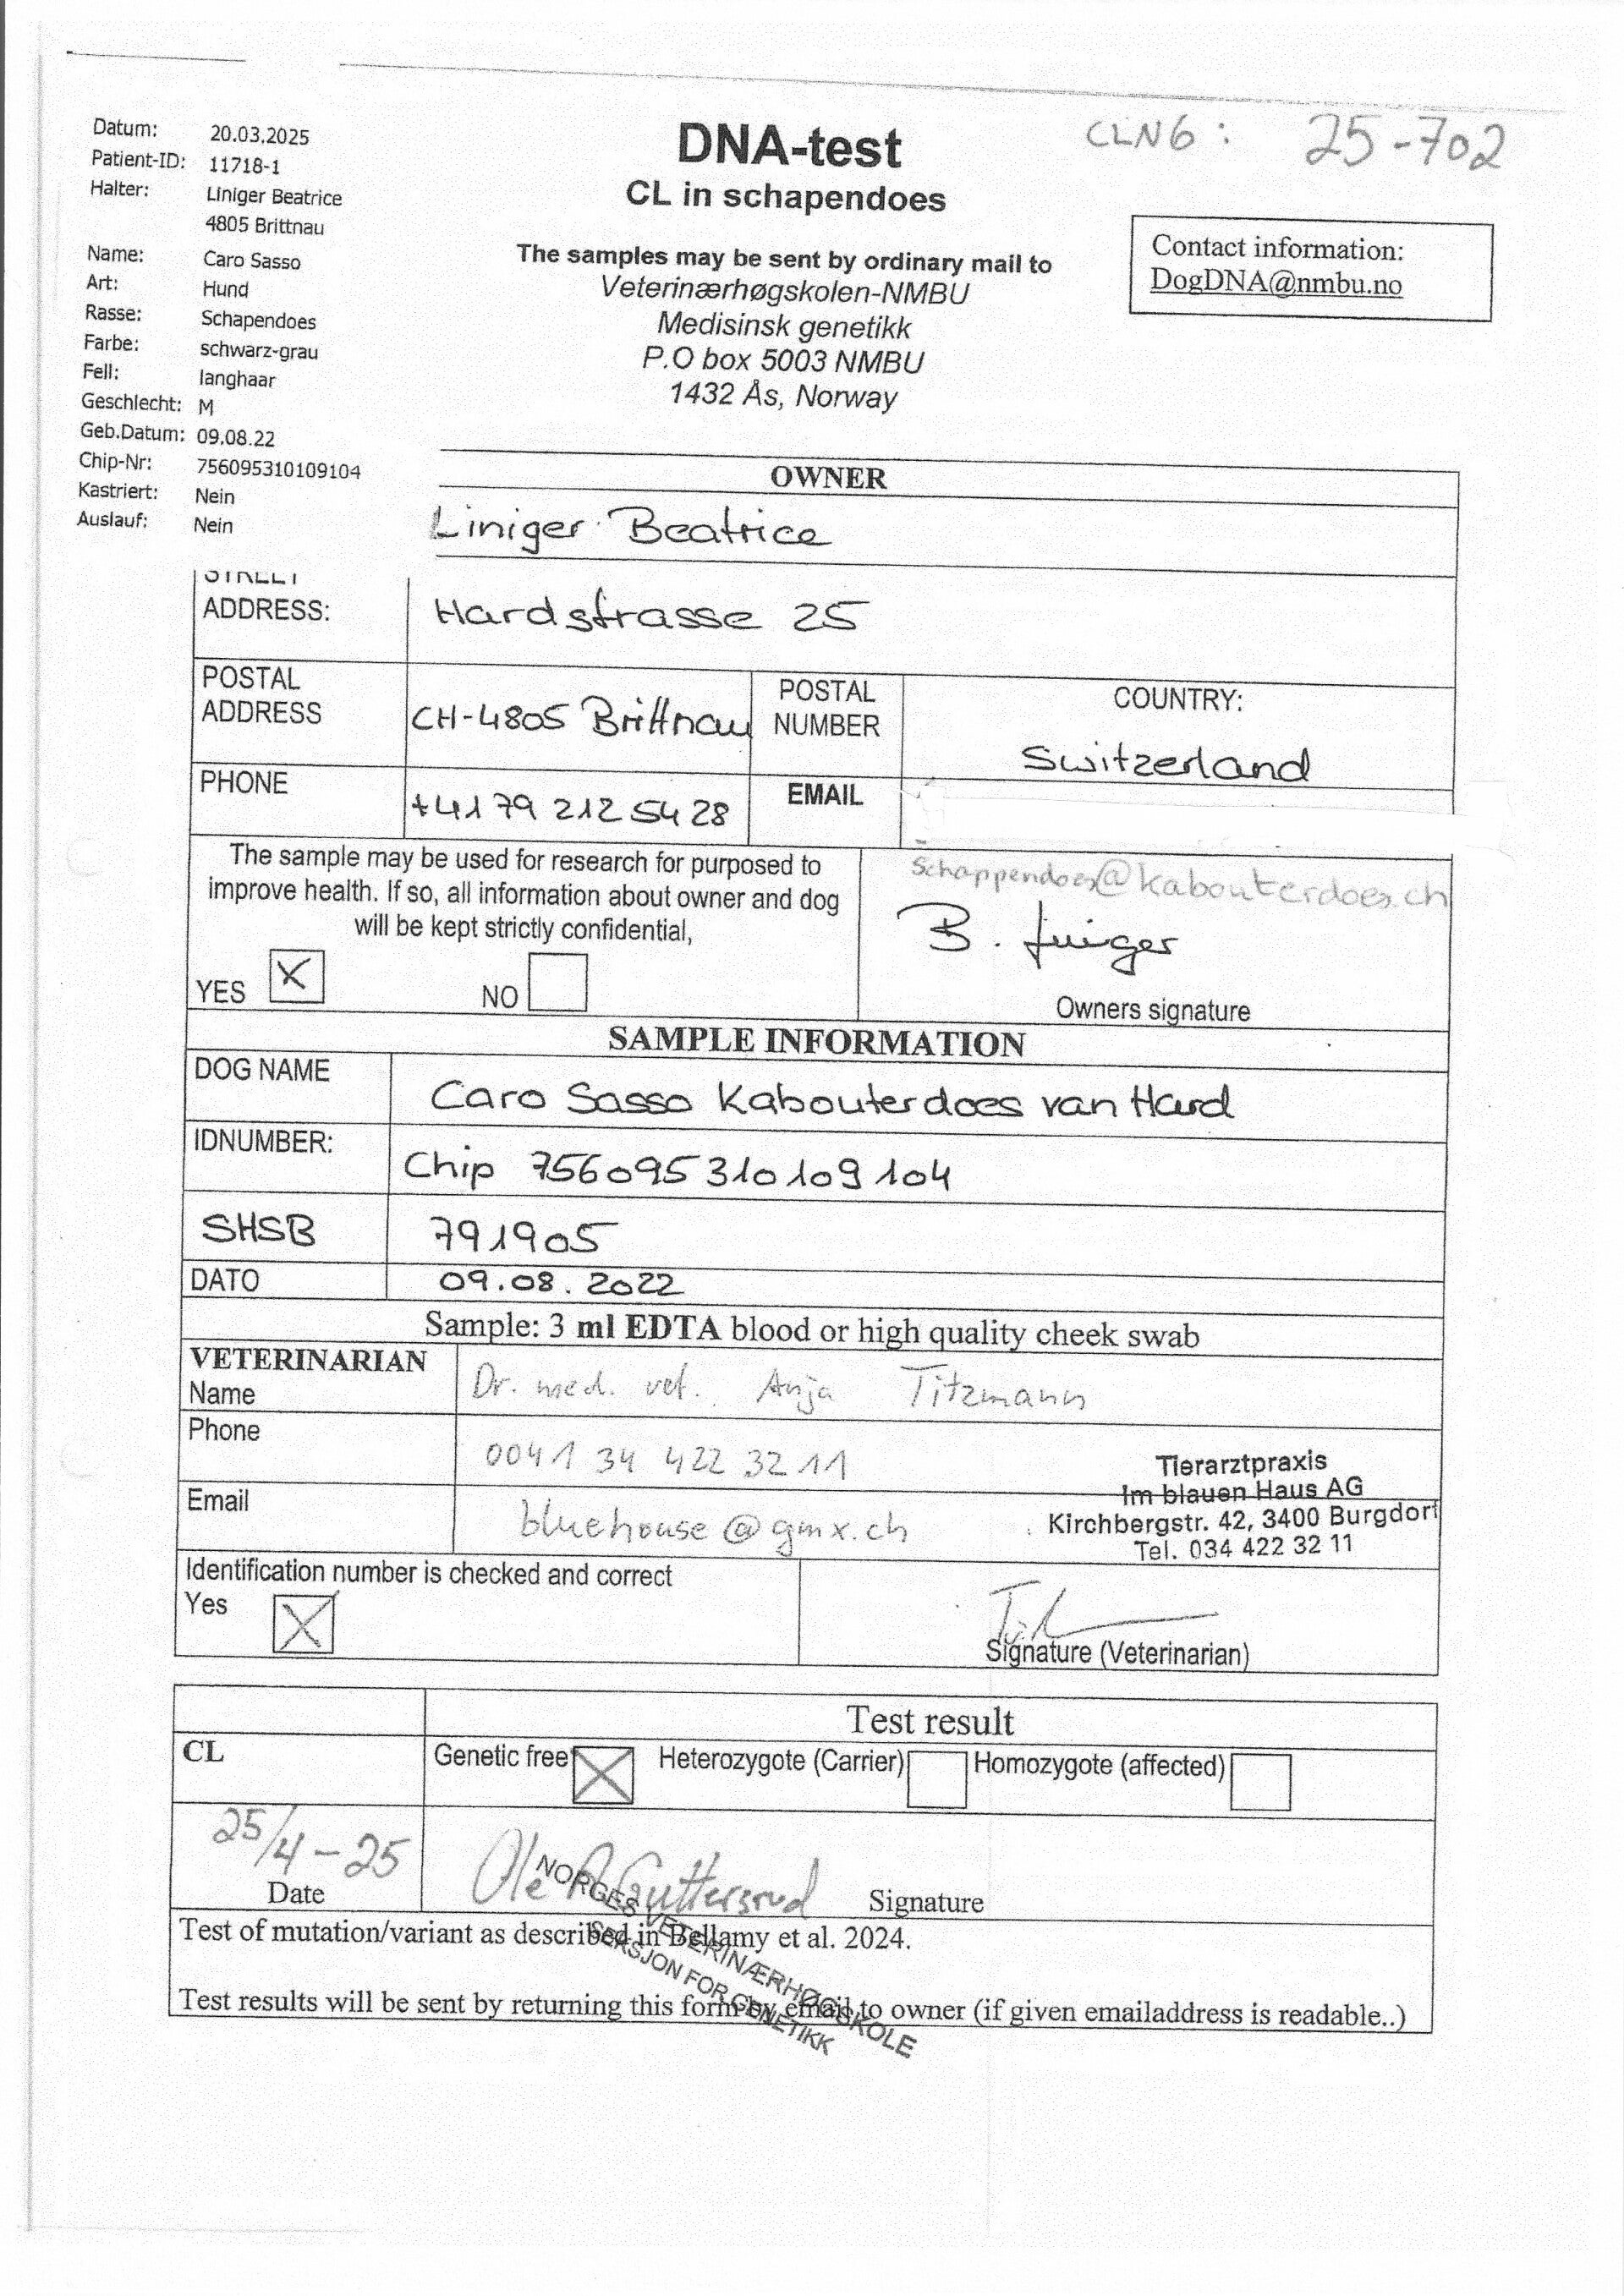 Datum: 20.03.2025
Patient-ID: 11718-1
Halter: Liniger Beatrice
4805 Brittnau
Name: Caro Sasso
Art: Hund
Rasse: Schapendoes
Farbe: schwarz-grau
Fell: langhaar
Geschlecht: M
Geb.Datum: 09.08.22
Chip-Nr: 756095310109104
Kastriert: Nein
Auslauf: Nein
DNA-test
CL in schapendoes
The samples may be sent by ordinary mail to
Veterinærhøgskolen-NMBU
Medisinsk genetikk
P.O box 5003 NMBU
1432 Ås, Norway
CLN6: 25-702
Contact information:
DogDNA@nmbu.no
OWNER
Liniger Beatrice
STREET
ADDRESS: Hardstrasse 25
POSTAL
ADDRESS CH-4805 Brittnau
POSTAL
NUMBER
COUNTRY:
Switzerland
PHONE +41 79 212 54 28
EMAIL
schappendoes@kabouterdoes.ch
The sample may be used for research for purposed to
improve health. If so, all information about owner and dog
will be kept strictly confidential,
YES X NO
B. Liniger
Owners signature
SAMPLE INFORMATION
DOG NAME Caro Sasso Kabouterdoes van Hard
IDNUMBER: Chip 756095310109104
SHSB 791905
DATO 09.08.2022
Sample: 3 ml EDTA blood or high quality cheek swab
VETERINARIAN
Name Dr. med. vet. Anja Titzmann
Phone 0041 34 422 32 11
Email bluehouse@gmx.ch
Tierarztpraxis
Im blauen Haus AG
Kirchbergstr. 42, 3400 Burgdorf
Tel. 034 422 32 11
Identification number is checked and correct
Yes X
Signature (Veterinarian)
Test result
CL Genetic free X Heterozygote (Carrier) Homozygote (affected)
25/4-25
Date
Ole Guttersrud
Signature
NORGES VETERINÆRHØGSKOLE
SEKSJON FOR GENETIKK
Test of mutation/variant as described in Bellamy et al. 2024.
Test results will be sent by returning this form by email to owner (if given emailaddress is readable..)